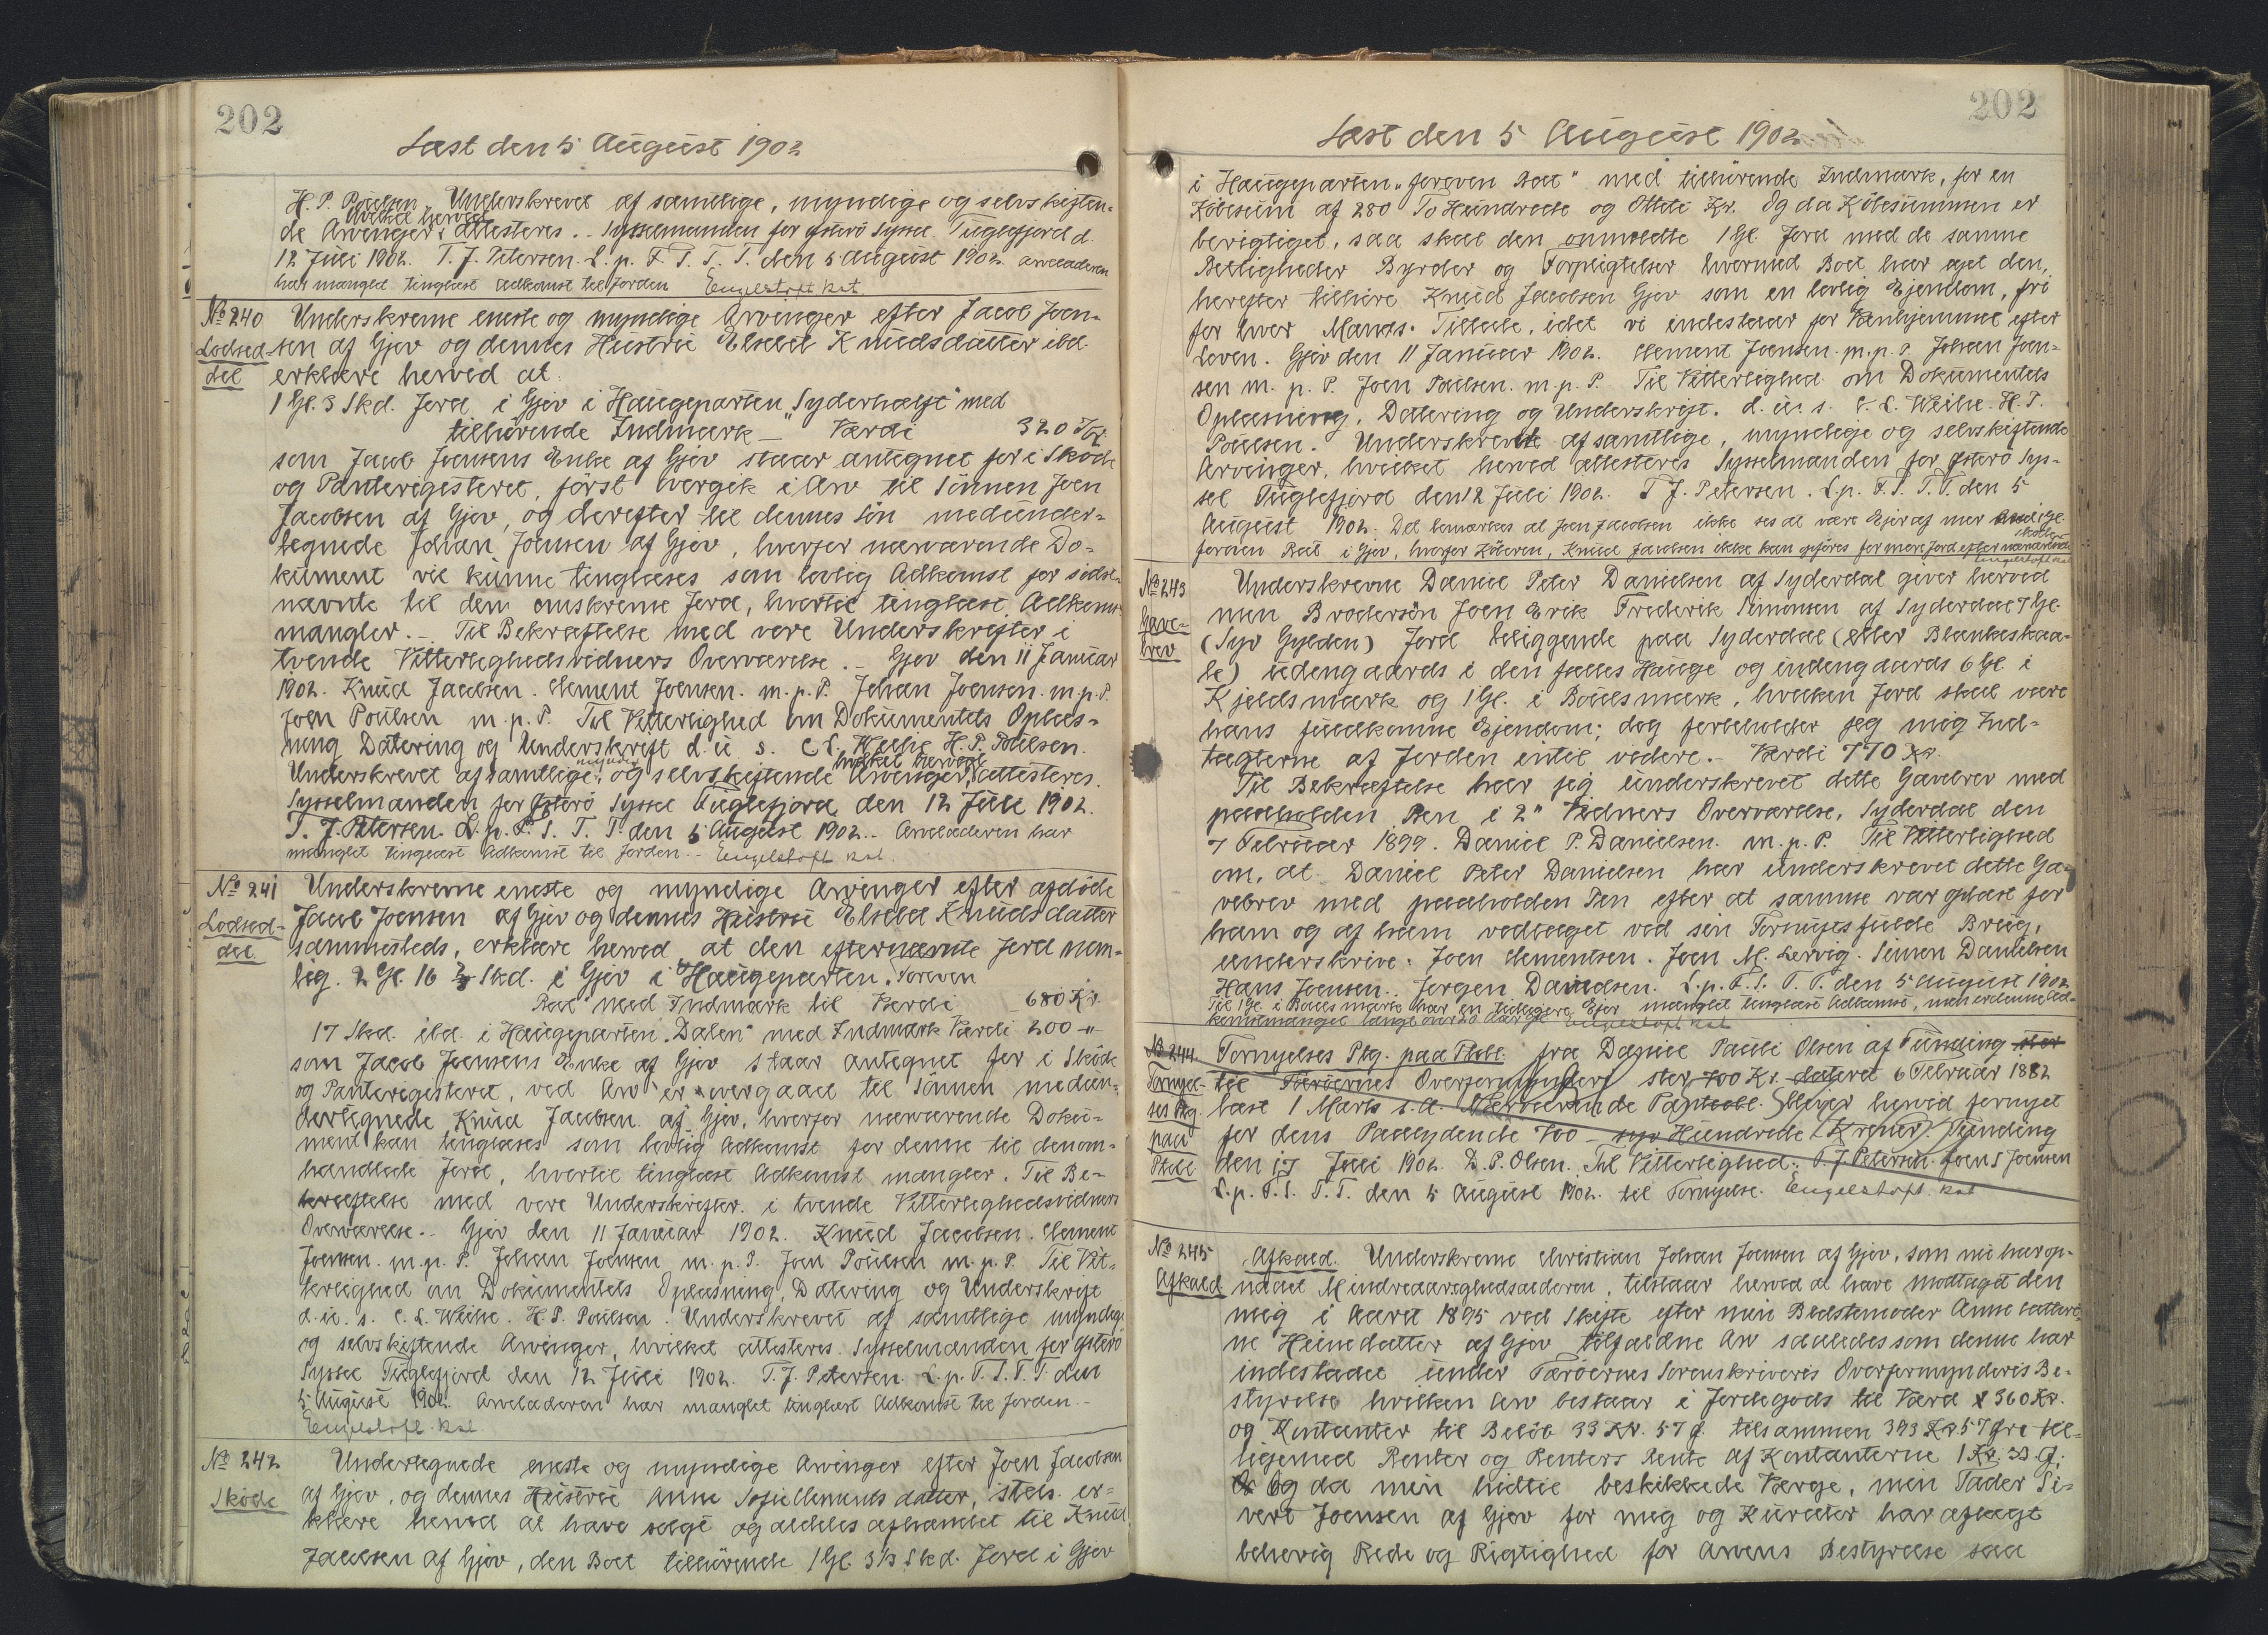 202
Læst den 5 August 1902
H. P. Poulsen. Underskrevet af samtlige, myndige og selvskiften-
hvilket herved
de Arvinger, attesteres. - Sysselmanden for Østerö Syssel Fuglefjord d.
12 Juli 1902. T. J. Petersen. L. p. F. S. T. T. den 5 August 1902. Arveladeren
har manglet tinglæst Adkomst til Jorden Engelstoft kst.
No 240 Underskrevne eneste og myndige Arvinger efter Jacob Joen-
Lodsed- sen af Gjov og dennes Hustru Elsebet Knudsdatter ibd.
del erklære herved at
1 Gl. 3 Skd. Jord i Gjov i Haugeparten "Syderhalft" med
tilhørende Indmark - Værdi 320 Kr.
som Jacob Joensens Enke af Gjov staar antegnet for i Skøde
og Panteregisteret, først overgik i Arv til Sönnen Joen
Jacobsen af Gjov, og derefter til dennes Sön medunder-
tegnede Johan Joensen af Gjov, hvorfor nærværende Do-
kument vil kunne tinglæses som lovlig Adkomst for sidst-
nævnte til den omskrevne Jord, hvortil tinglæst Adkomst
mangler. - Til Bekræftelse med vore Underskrifter i
tvende Vitterlighedsvidners Overværelse. - Gjov den 11 Januar
1902. Knud Jacobsen. Clement Joensen. m. p. P. Johan Joensen. m. p. P.
Joen Poulsen m. p. P. Til Vitterlighed om Dokumentets Oplæs-
ning Datering og Underskrift d. u. s. C. L. Weihe H. P. Poulsen.
myndige hvilket herved
Underskrevet af samtlige, og selvskiftende Arvinger, attesteres.
Sysselmanden for Østerö Syssel Fuglefjord den 12 Juli 1902.
T. J. Petersen. L. p. F. S. T. T. den 5 August 1902. - Arveladeren har
manglet tinglæst Adkomst til Jorden. - Engelstoft kst.
No 241 Underskrevne eneste og myndige Arvinger efter afdöde
Lodsed- Jacob Joensen af Gjov og dennes Hustru Elsebet Knudsdatter
del sammesteds, erklære herved at den efternævnte Jord nem-
lig. 2 Gl. 16 2/3 Skd. i Gjov i Haugeparten "Foreven
Raa" med Indmark til Værdi 680 Kr.
17 Skd. ibd. i Haugeparten "Dalen" med Indmark Værdi 200 -"-
som Jacob Joensens Enke af Gjov staar antegnet for i Skøde
og Panteregisteret, ved Arv er overgaaet til Sönnen medun-
dertegnede Knud Jacobsen af Gjov, hvorfor nærværende Doku-
ment kan tinglæses som lovlig Adkomst for denne til denom-
handlede Jord, hvortil tinglæst Adkomst mangler. Til Be-
kræftelse med vore Underskrifter i tvende Vitterlighedsvidners
Overværelse. - Gjov den 11 Januar 1902. Knud Jacobsen. Clement
Joensen. m. p. P. Johan Joensen m. p. P. Joen Poulsen m. p. P. Til Vit-
terlighed om Dokumentets Oplæsning, Datering og Underskrift
d. u. s. C. L. Weihe. H. P. Poulsen. Underskrevet af samtlige myndige
og selvskiftende Arvinger, hvilket attesteres. Sysselmanden for Østerö
Syssel Fuglefjord den 12 Juli 1902. T. J. Petersen. L. p. F. S. T. T. den
5 August 1902. Arveladeren har manglet tinglæst Adkomst til Jorden. -
Engelstoft. kst.
No 242 Undertegnede eneste og myndige Arvinger efter Joen Jacobsen
Skøde af Gjov, og dennes Hustru Anne Sofie Clements datter, steds. er-
klære herved at have solgt og aldeles afhændet til Knud
Jacobsen af Gjov, den Boet tilhørende 1 Gl. 3 1/3 Skd. Jord i Gjov
202
Læst den 5 August 1902
i Haugeparten "foreven Raa" med tilhörende Indmark, for en
Köbesum af 280 To Hundrede og Otteti Kr. Og da Köbesummen er
berigtiget, saa skal den anmeldte 1 Gl. Jord med de samme
Rettigheder Byrder og Forpligtelser hvormed Boet har ejet den,
herefter tilhöre Knud Jacobsen Gjov som en lovlig Ejendom, fri
for hver Mands Tiltale, idet vi indestaar for Vanhjemmel efter
Loven. Gjov den 11 Januar 1902. Clement Joensen. m. p. P. Johan Joen-
sen m. p. P. Joen Poulsen. m. p. P. Til Vitterlighed om Dokumentets
Oplæsning, Datering og Underskrift. d. u. s. C. L. Weihe. H. P.
Poulsen. Underskrevet af samtlige, myndige og selvskiftende
Arvinger, hvilket herved attesteres Sysselmanden for Østerö Sys-
sel Fuglefjord den 12 Juli 1902. T. J. Petersen. L. p. F. S. T. T. den 5
August 1902. Det bemærkes at Joen Jacobsen ikke ses at være Ejer af mer end 1 Gl.
foreven Raa i Gjov, hvorfor Köberen, Knud Jacobsen ikke kan opføres for mere Jord efter nærværende
Skøde
Engelstoft kst
No 243 Underskrevne Daniel Peter Danielsen af Syderdal giver herved
Gave- min Brodersön Joen Erik Frederik Simonsen af Syderdal 7 Gl.
brev (Syv Gylden) Jord beliggende paa Syderdal (eller Blankeskaa-
le) udengaards i den fælles Hauge og indengaards 6 Gl. i
Kjeldsmark og 1 Gl. i Boelsmark, hvilken Jord skal være
hans fuldkomne Ejendom; dog forbeholder jeg mig Ind-
tægterne af Jorden indtil videre. - Værdi 770 Kr.
Til Bekræftelse har jeg underskrevet dette Gavebrev med
paaholden Pen i 2" Vidners Overværelse, Syderdal den
7 Februar 1899. Daniel P. Danielsen. m. p. P. Til Vitterlighed
om, at Daniel Peter Danielsen har underskrevet dette Ga-
vebrev med paaholden Pen efter at samme var oplæst for
ham og af ham vedtaget ved sin Fornufts fulde Brug,
underskrive. Joen Clementsen. Joen M. Lervig. Simon Danielsen
Hans Joensen. Jørgen Davidsen. L. p. F. S. T. T. den 5 August 1902
Til 1 Gl. i Boels mark har en tidligere Ejer manglet tinglæst Adkomst, men er denne Ad-
komstmangel langt over 20 Aar gl. Engelstoft kst
No 244. Fornyelses Ptg. paa Pbobl. fra Daniel Pauli Olsen af Funding stor
Fornyel- til Færöernes Overformynderi stor 700 Kr. dateret 6 Februar 1882
ses Ptg. læst 1 Marts s. A. Nærværende Panteobl. bliver herved fornyet
paa for dens Paalydende 700 - syv Hundrede Kroner. Funding
Pbobl den 17 Juli 1902. D. P. Olsen. Til Vitterlighed: T. J. Petersen. Joen S Joensen
L. p. F. S. T. T. den 5 August 1902. til Fornyelse. Engelstoft. kst
No 245 Afkald. Underskrevne Christian Johan Joensen af Gjov, som nu har op-
Afkald naaet Mindreaarighedsalderen, tilstaar herved at have modtaget den
mig i Aaret 1895 ved Skifte efter min Bedstemoder Anne Cathri-
ne Heinedatter af Gjov tilfaldne Arv saaledes som denne har
indestaaet under Færöernes Sorenskriveris Overformynderis Be-
styrelse hvilken Arv bestaar i Jordegods til Værd 360 Kr.
og Kontanter til Belöb 33 Kr. 57 Ø. tilsammen 393 Kr. 57 Øre til-
ligemed Renter og Renters Rente af Kontanterne 1 Kr. 33 Ø.
Og da min hidtil beskikkede Værge, min Fader Si-
vert Joensen af Gjov for mig og Kurator har aflagt
behörig Rede og Rigtighed for Arvens Bestyrelse saa